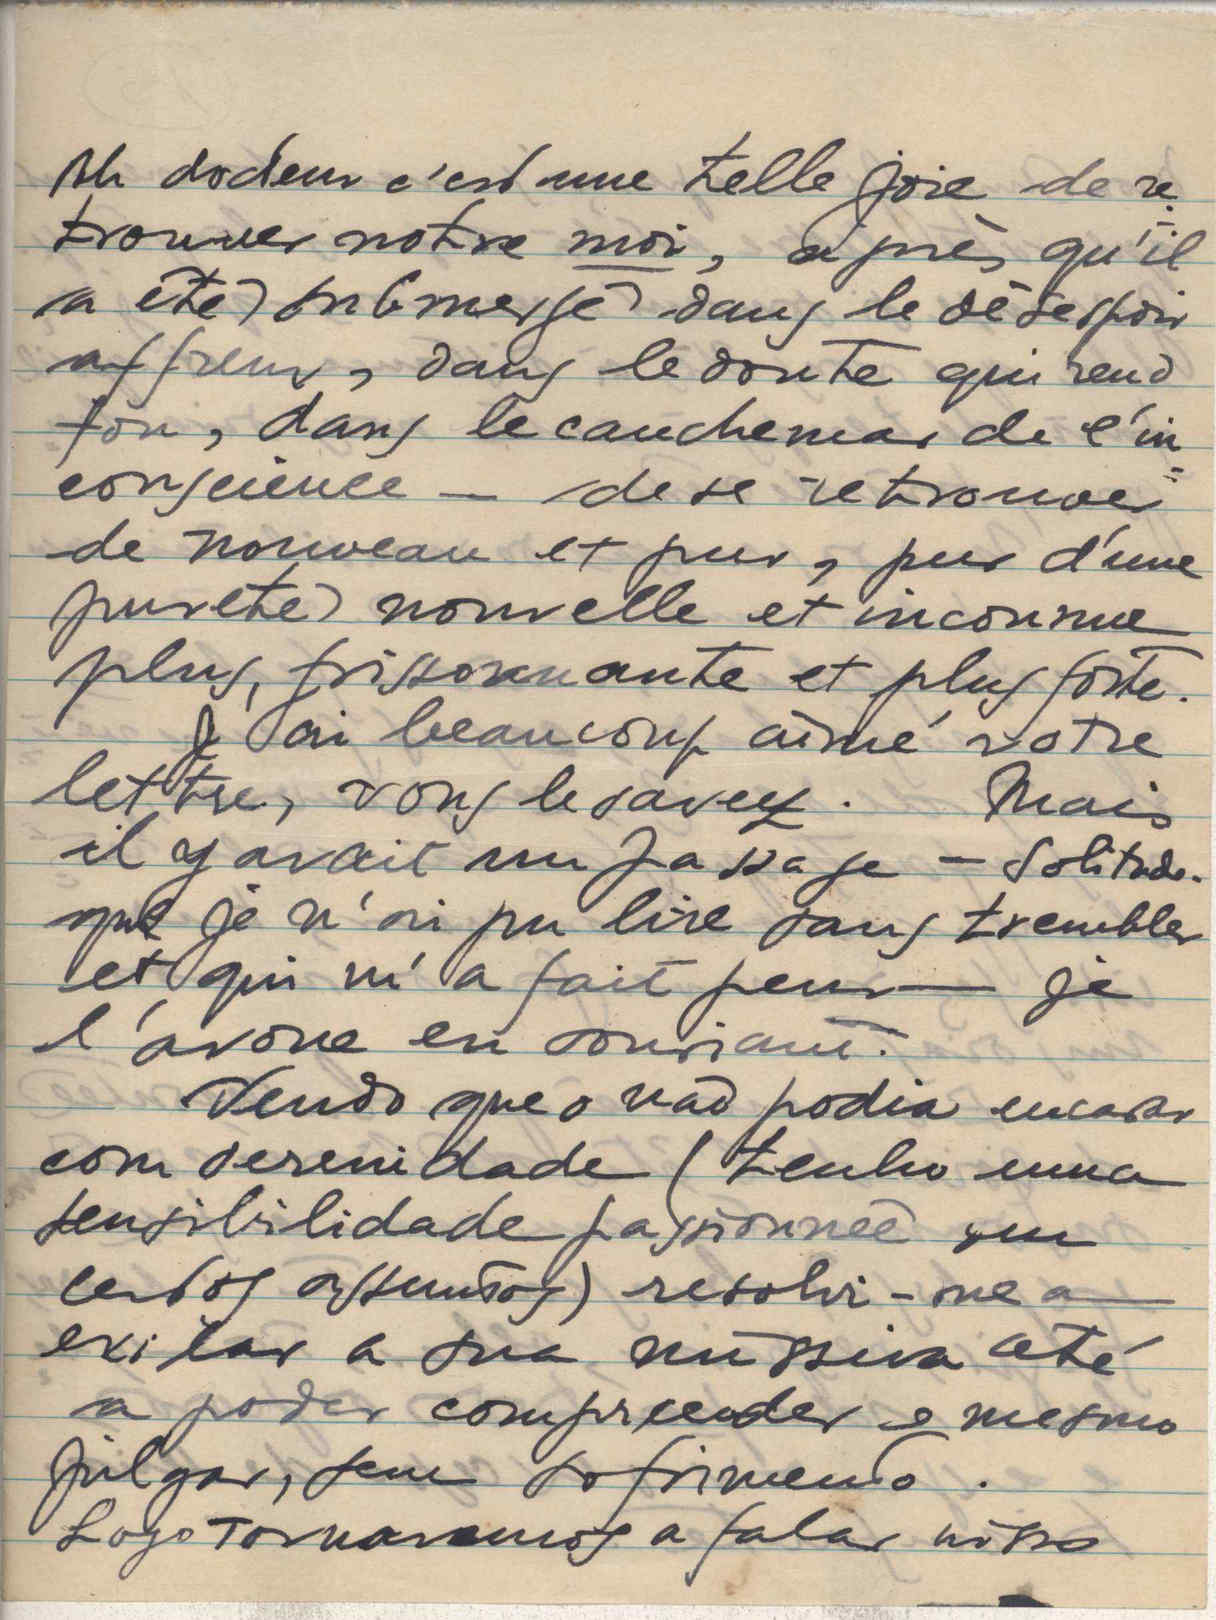 Ah docteur c'est une telle joie de re
trouver notre moi, après qu'il
a été submergé dans le désespoir
affreux, dans le doute qui rend
fou, dans le cauchemar de l'in
conscience — de se retrouver
de nouveau et pur, pur d'une
pureté nouvelle et inconnue
plus, frissonnante et plus forte.
J'ai beaucoup aimé votre
lettre, vous le savez. Mais
il y avait un passage — Solitude.
que je n'ai pu lire sans trembler
et qui m'a fait peur — je
l'avoue en souriant.
Vendo que o não podia encarar
com serenidade (tenho uma
sensibilidade passionnée em
certos assuntos) resolvi-me a
exilar a sua missiva até
a poder compreender e mesmo
julgar, sem sofrimento.
Logo tornaremos a falar nisso